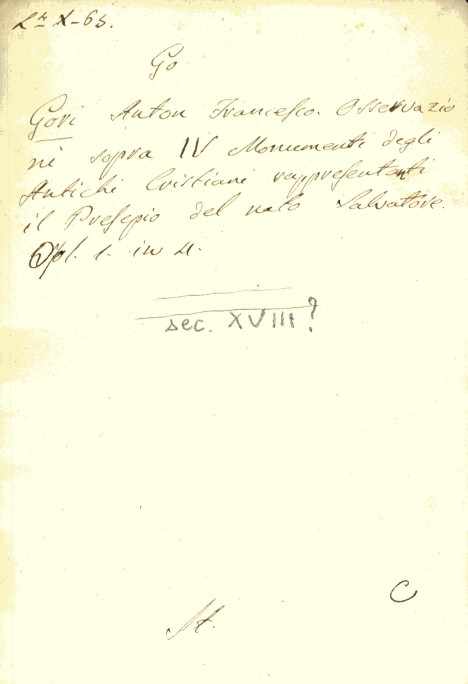 Go
Gori Anton Francesco. Osservazio
ni sopra IV Monumenti degli
Antichi Cristiani rappresentanti
il Presepio del nato Salvatore.
Opl. 1. in 4.
sec. XVIII?
C